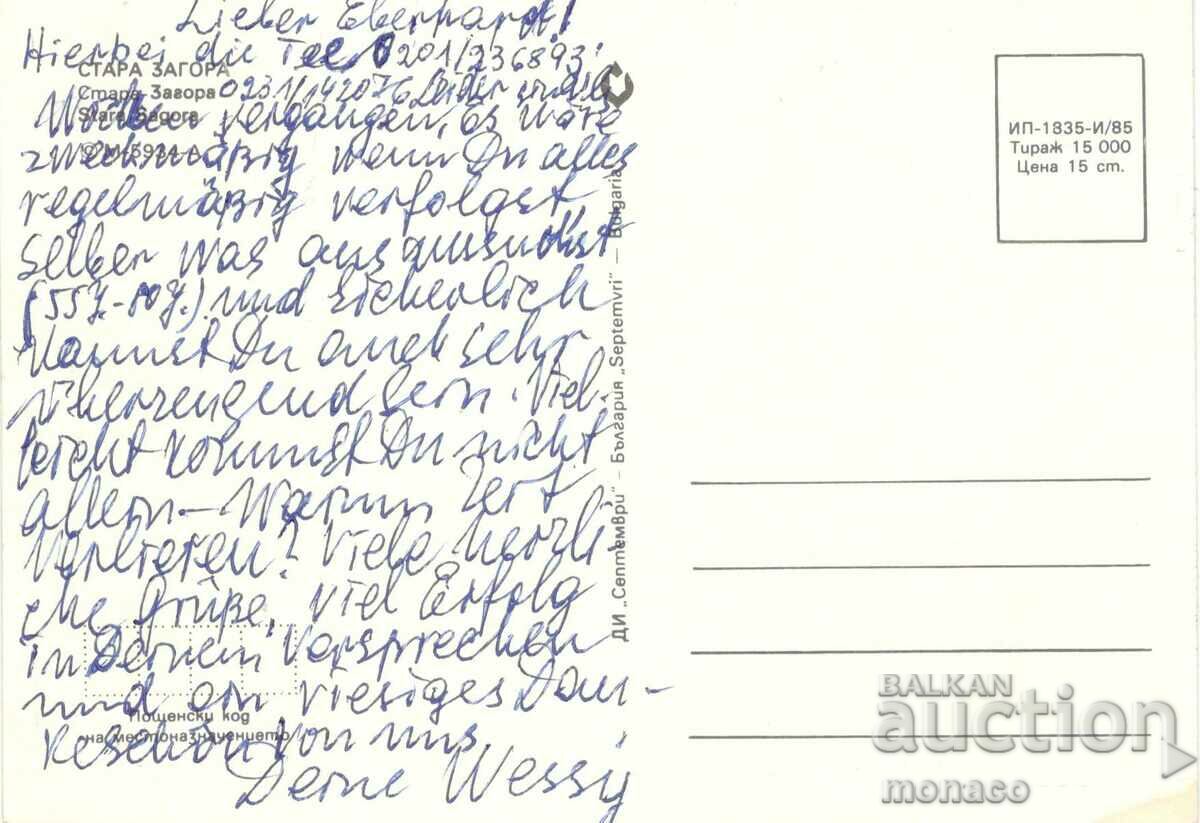 Lieber Eberhard!
Hierbei die Tel. 0201/236893!
СТАРА ЗАГОРА
Стара Загора
0231/142076 Leider sind
Stara Sagora
Wochen vergangen, es wäre
© М-5934-А
zweckmäßig wenn Du alles
regelmäßig verfolgst,
selber was aussuchst
und sicherlich
kannst Du auch sehr
überzeugend sein. Viel-
leicht kommst Du nicht
allein – Warum Zeit
verlieren? Viele herzli
che Grüße, viel Erfolg
in Deinem Vorsprechen
und ein riesiges Dan-
keschön von uns
Пощенски код
на местоназначението
Deine Wessy
ДИ „Септември“ – България „Septemvri“ – Bulgaria
ИП-1835-И/85
Тираж 15 000
Цена 15 ст.
BALKAN
auction
monaco